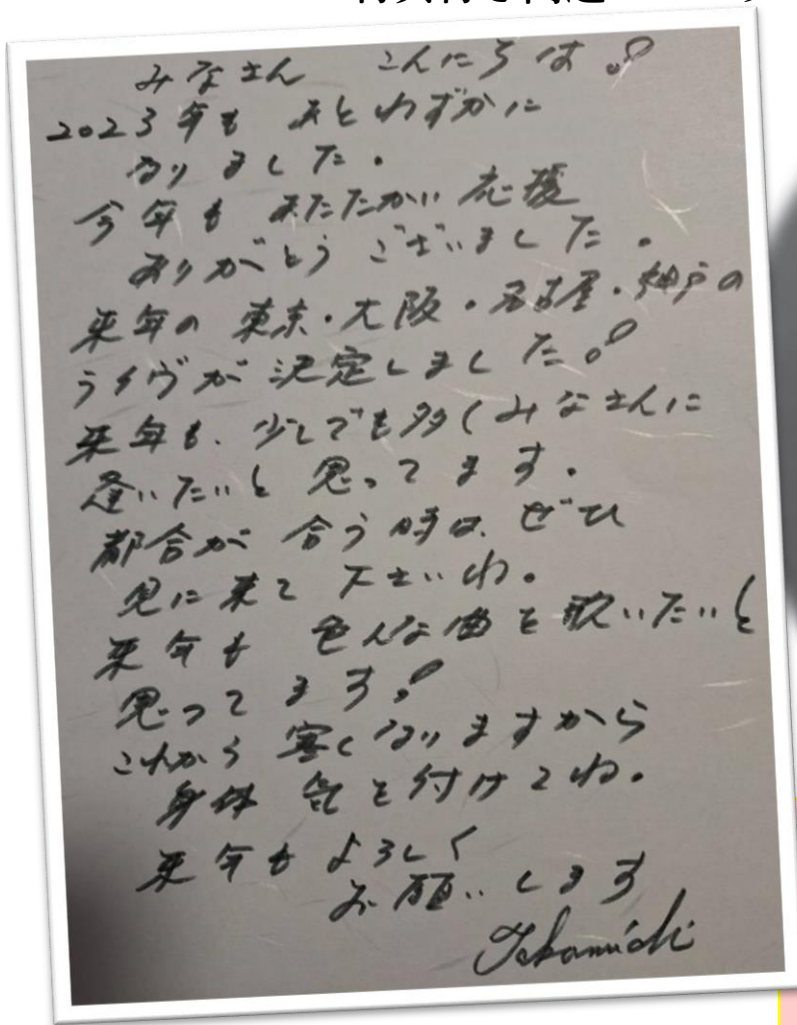 みなさん こんにちは!
2023年も あとわずかに
なりました。
今年も あたたかい 応援
ありがとう ございました。
来年の 東京・大阪・名古屋・神戸の
ライヴが 決定しました!
来年も、少しでも多くみなさんに
逢いたいと 思ってます。
都合が 合う時は、ぜひ
見に来て 下さいね。
来年も 色んな曲を 歌いたいと
思ってます!
これから 寒くなりますから
身体 気を付けてね。
来年もよろしく
お願いします
Takamichi